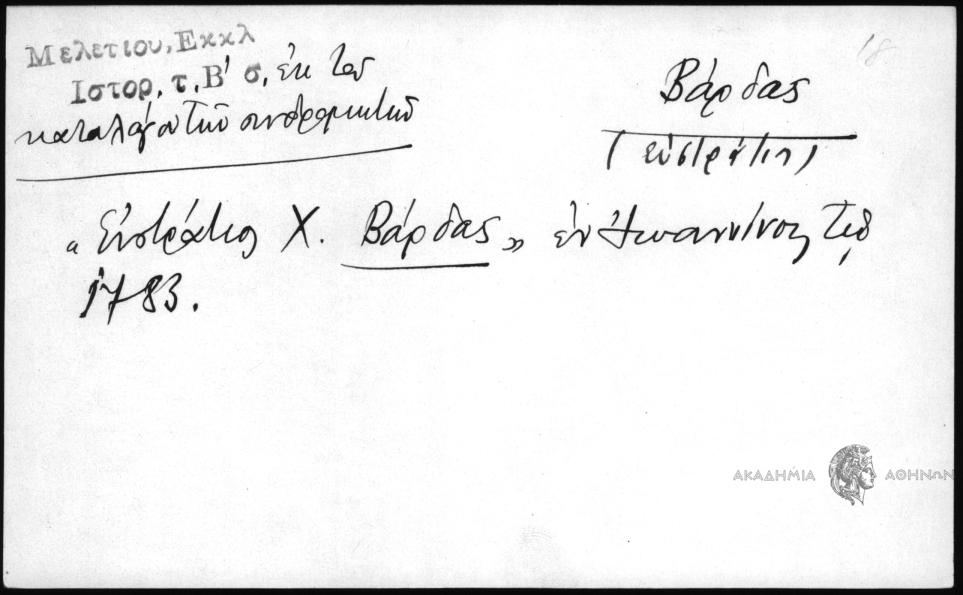 Μελετιου, Εκκλ
Ιστορ, τ, Β' σ, ἐκ τοῦ
καταλόγου τῶν συνδρομητῶν
18
Βάρδας
(εὐστράτιη)
«Εὐστράτιος Χ. Βάρδας» ἐν Ἰωαννίνοις τῷ
1783.
ΑΚΑΔΗΜΙΑ ΑΘΗΝΩΝ